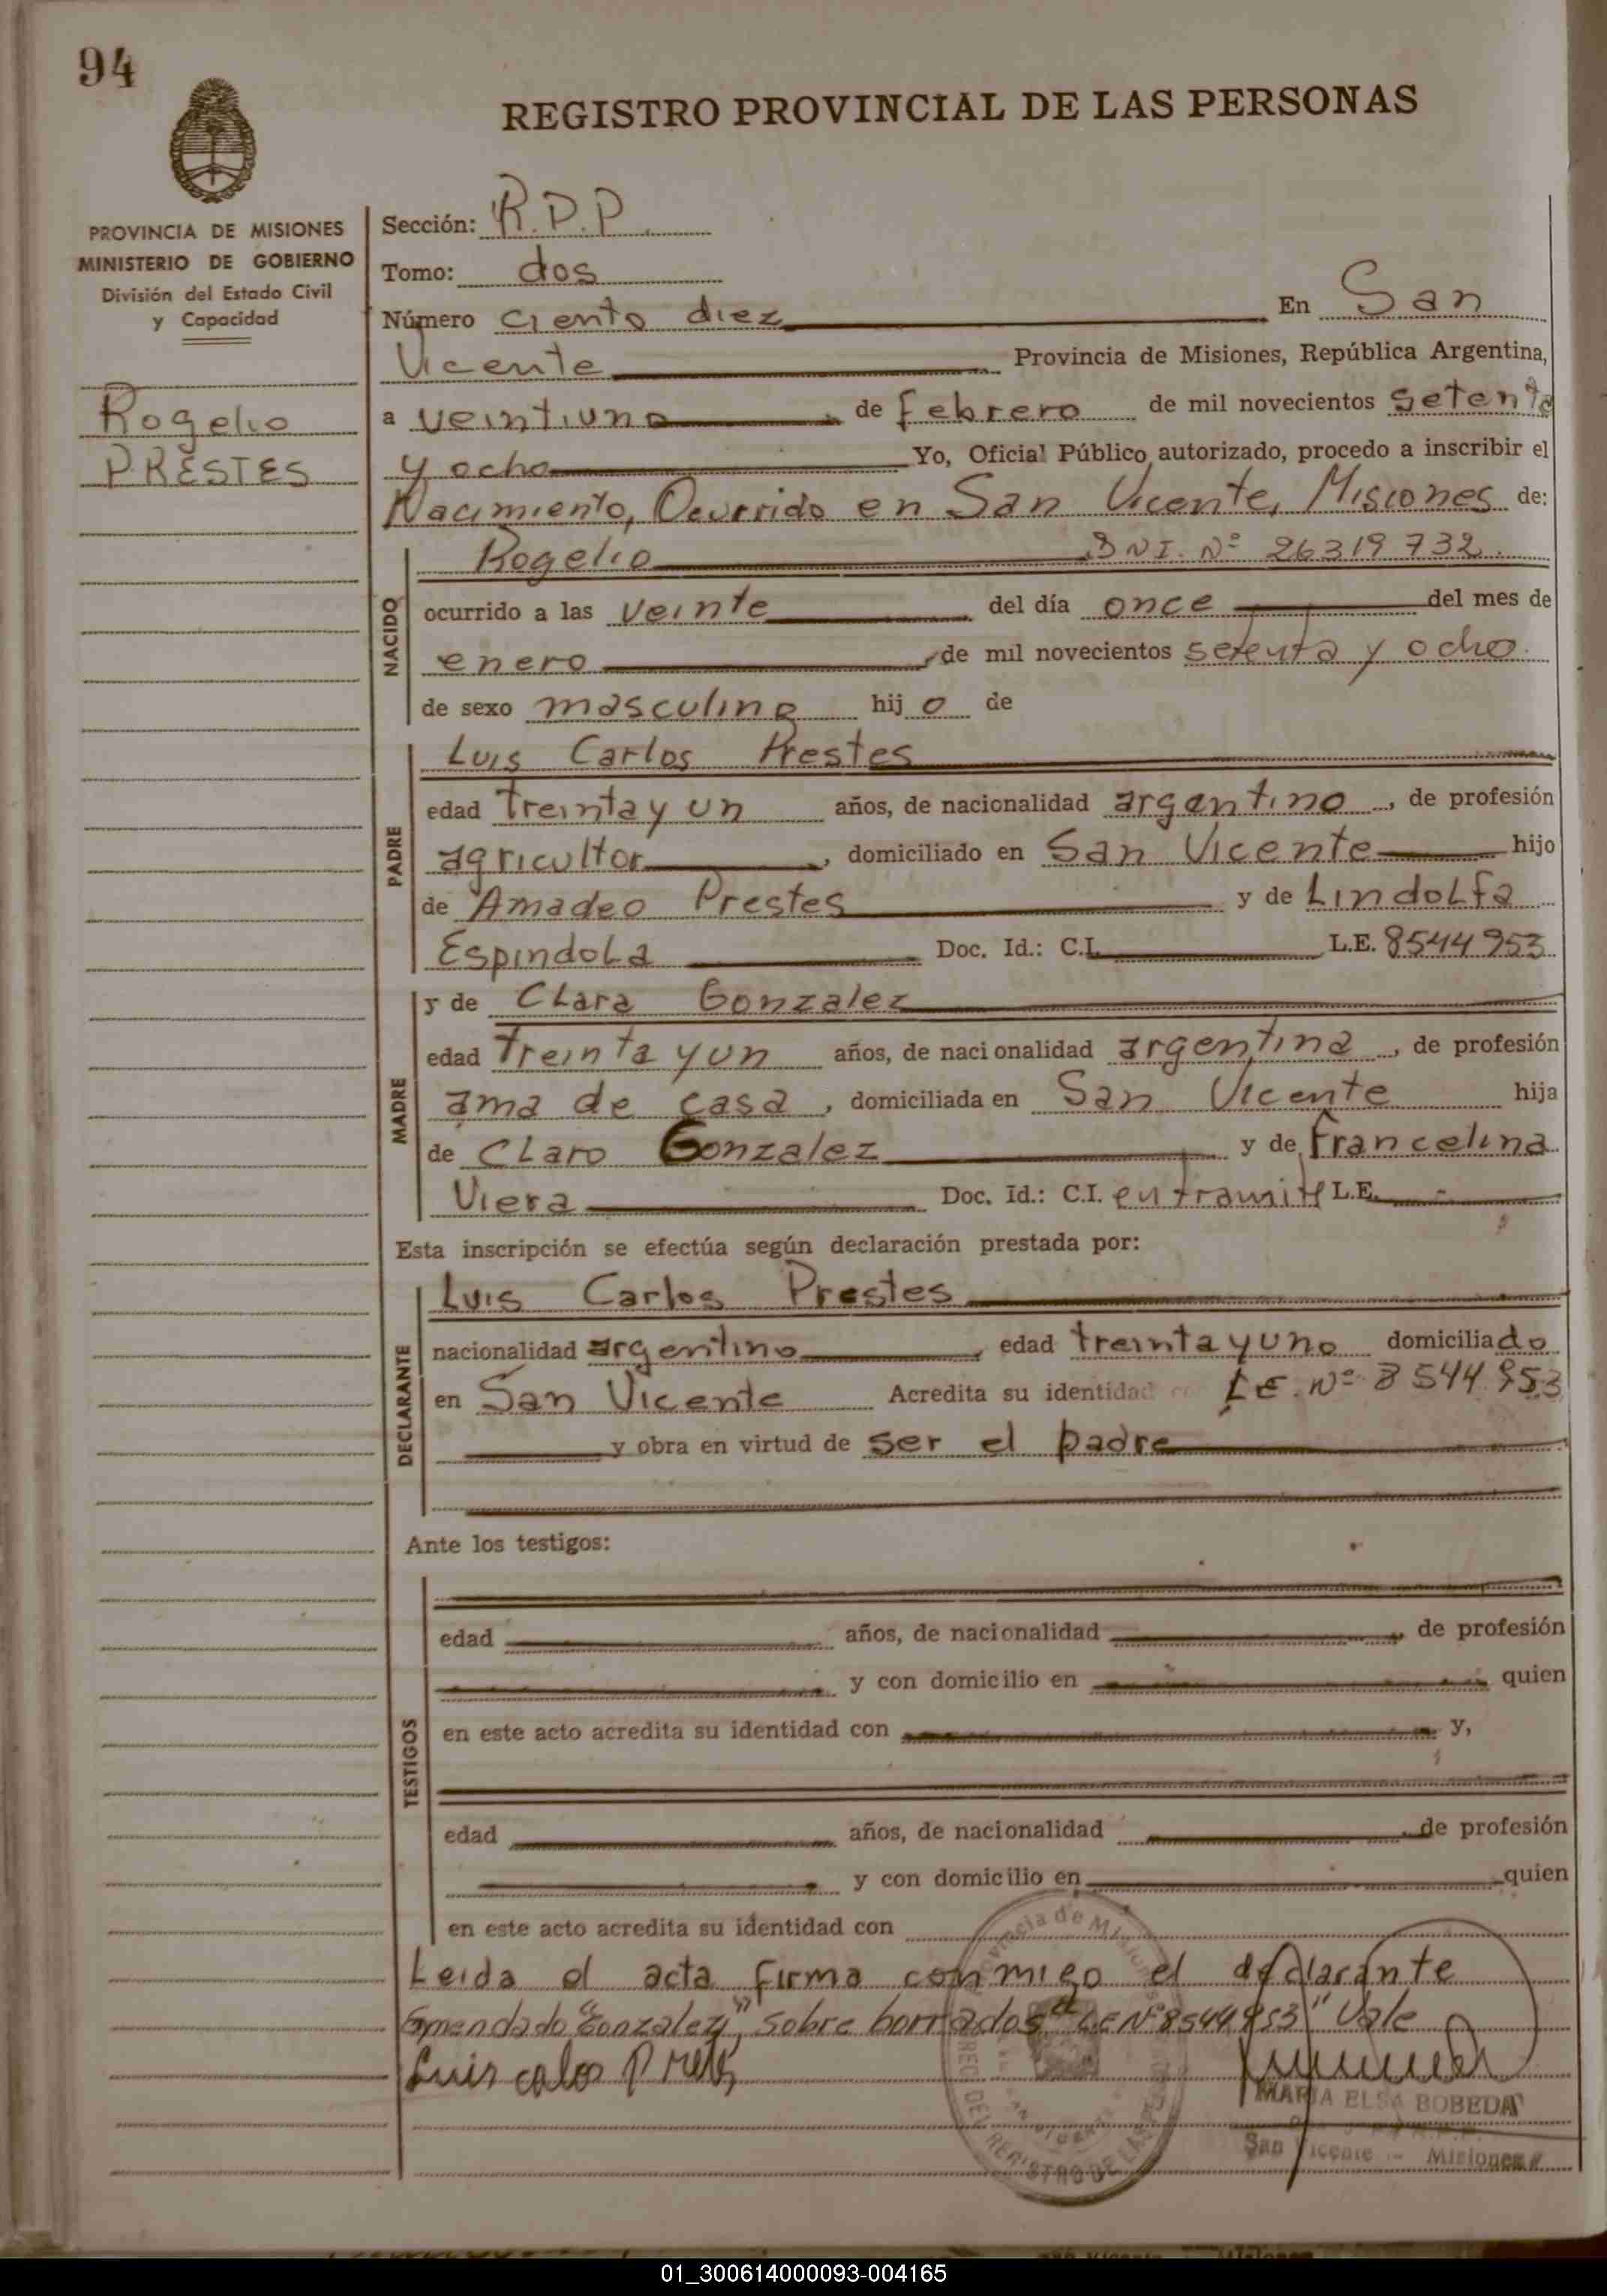 94
REGISTRO PROVINCIAL DE LAS PERSONAS
PROVINCIA DE MISIONES
MINISTERIO DE GOBIERNO
División del Estado Civil
y Capacidad
Rogelio
PRESTES
Sección: R.P.P.
Tomo: dos
Número ciento diez En San
Vicente Provincia de Misiones, República Argentina,
a veintiuno de febrero de mil novecientos setenta
y ocho Yo, Oficial Público autorizado, procedo a inscribir el
Nacimiento, Ocurrido en San Vicente, Misiones de:
NACIDO
Rogelio DNI. Nº 26319732.
ocurrido a las veinte del día once del mes de
enero de mil novecientos setenta y ocho.
de sexo masculino hijo de
PADRE
Luis Carlos Prestes
edad treinta y un años, de nacionalidad argentino, de profesión
agricultor, domiciliado en San Vicente hijo
de Amadeo Prestes y de Lindolfa
Espindola Doc. Id.: C.I. L.E. 8544953
MADRE
y de Clara Gonzalez
edad treinta y un años, de nacionalidad argentina, de profesión
ama de casa, domiciliada en San Vicente hija
de Claro Gonzalez y de Francelina
Viera Doc. Id.: C.I. en tramite L.E.
Esta inscripción se efectúa según declaración prestada por:
DECLARANTE
Luis Carlos Prestes
nacionalidad argentino edad treinta y uno domiciliado
en San Vicente Acredita su identidad con L.E. Nº 8544953
y obra en virtud de ser el padre
Ante los testigos:
TESTIGOS
edad años, de nacionalidad, de profesión
y con domicilio en quien
en este acto acredita su identidad con y,
edad años, de nacionalidad de profesión
y con domicilio en quien
en este acto acredita su identidad con
Leida el acta firma conmigo el declarante
Emendado "Gonzalez", sobre borrados "LE Nº 8544953" Vale
Luis calos
MARIA ELSA BOBEDA
San Vicente - Misiones
Provincia de Misiones
REGISTRO DE LAS
01_300614000093-004165